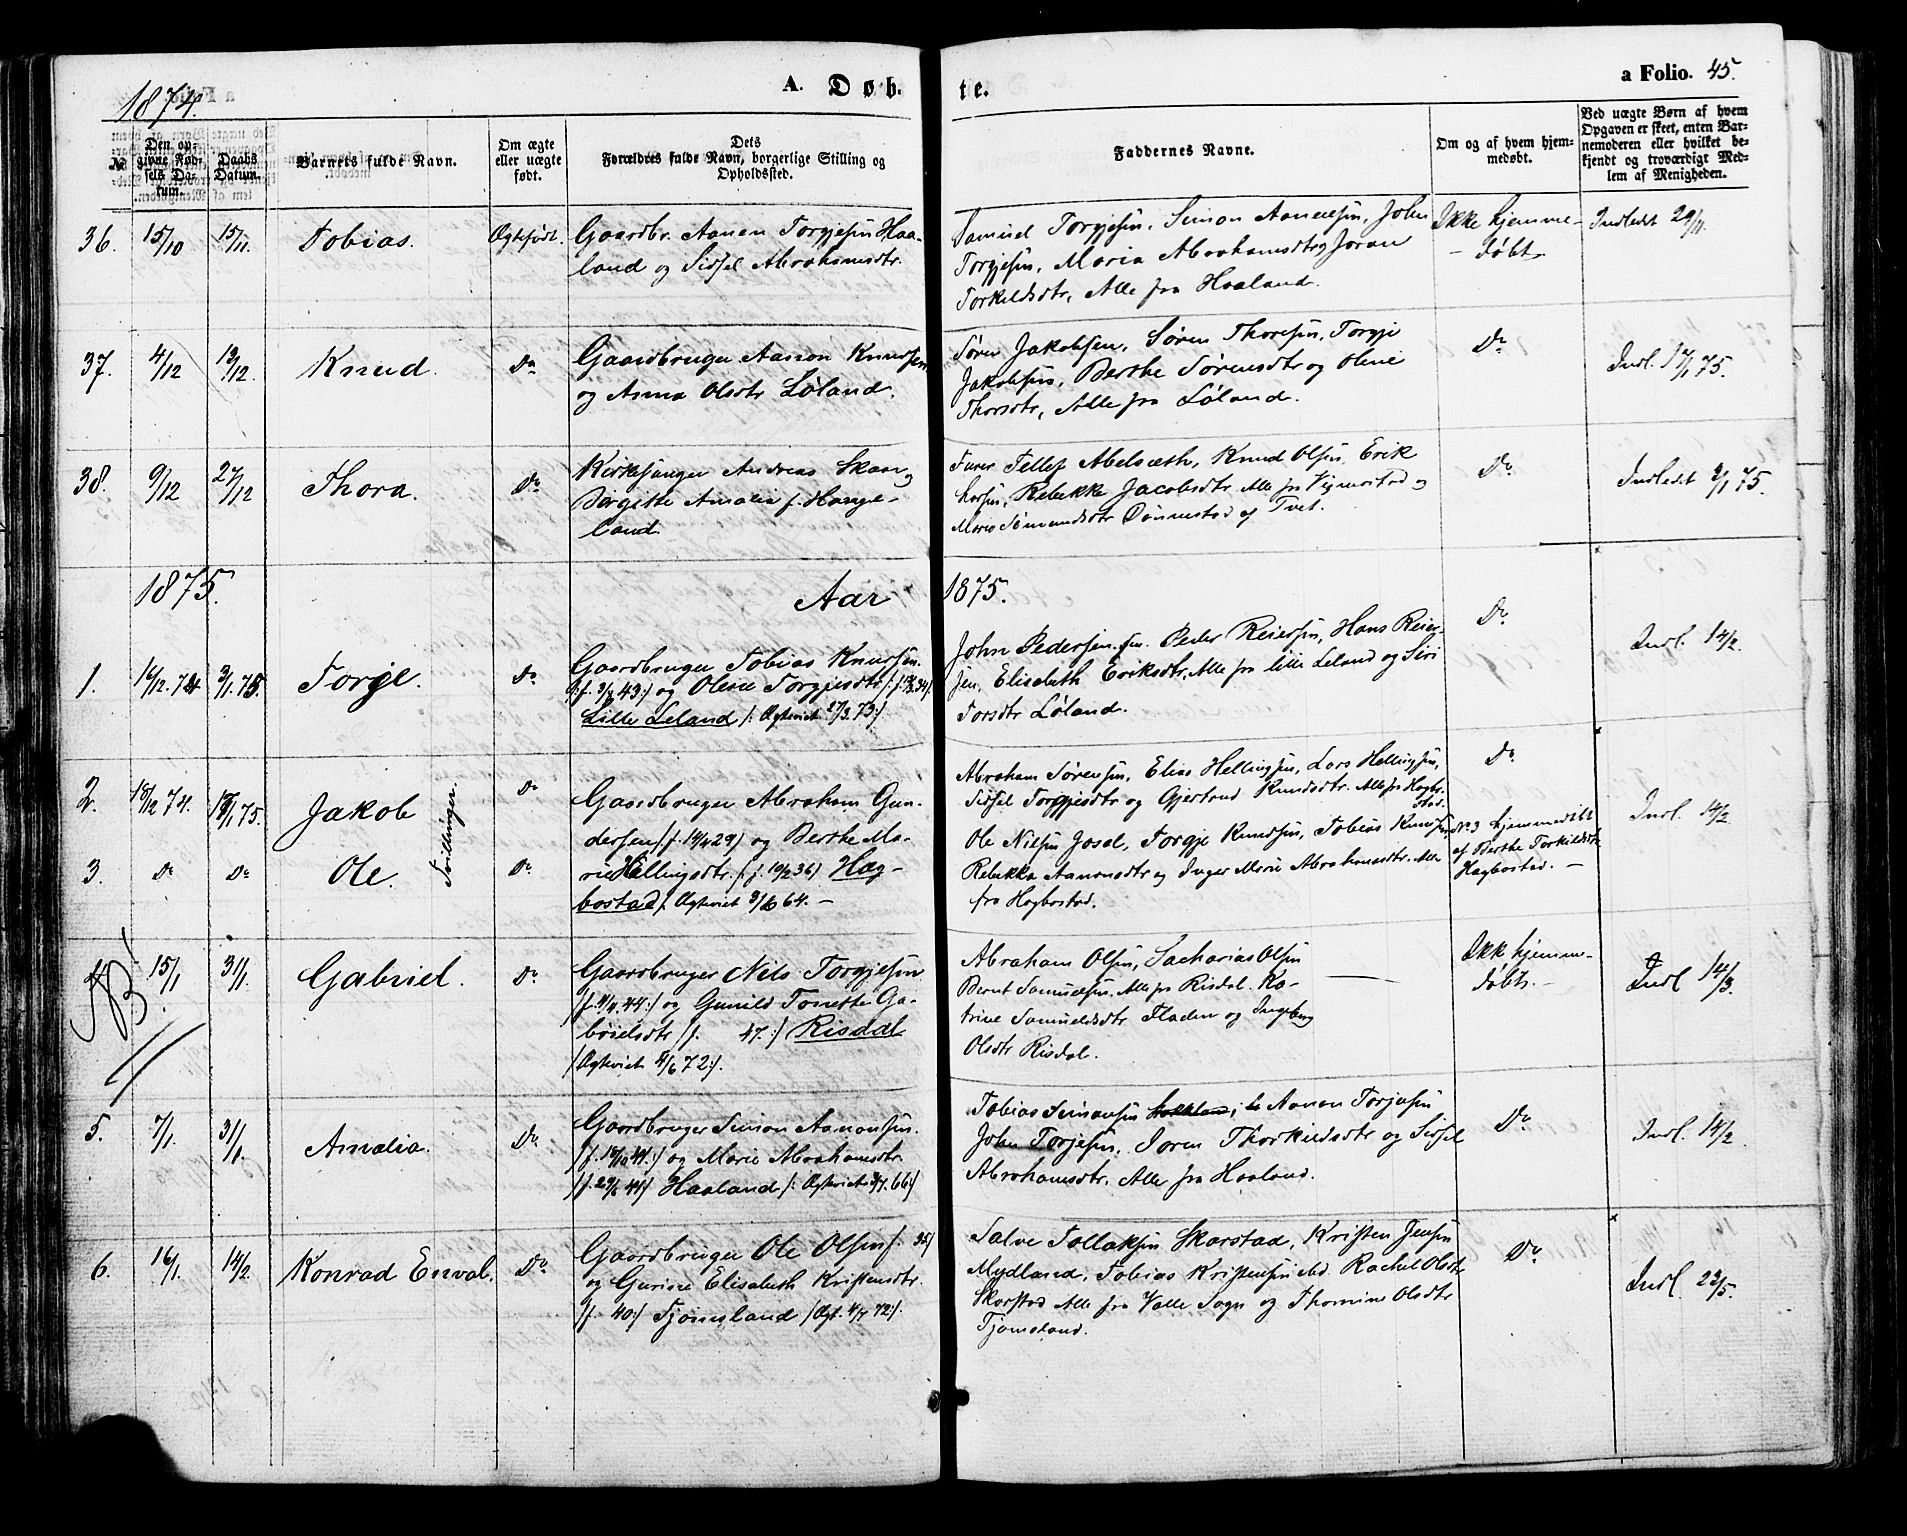 1874.
A. Døb-
te.
a Folio. 45.
№
Den op-
givne Fød-
sels Da-
tum.
Daabs
Datum.
Barnets fulde Navn.
Om ægte
eller uægte
født.
Dets
Forældres fulde Navn, borgerlige Stilling og
Opholdssted.
Faddernes Navne.
Om og af hvem hjem-
medøbt.
Ved uægte Børn af hvem
Opgaven er skeet, enten Bar-
nemoderen eller hvilket be-
kjendt og troværdigt Med-
lem af Menigheden.
36. 15/10 15/11. Tobias. Ægtefødt.
Gaardbr. Aanen Torgjesen Haa-
land og Sidsel Abrahamsdtr.
Samuel Torgjesen, Simon Aanensen, John
Torgjesen, Maria Abrahamsdtr og Joran
Torkildsdtr, Alle fra Haaland.
Ikke hjemme-
- døbt
Indledet 29/11.
37. 4/12 13/12. Knud. Do
Gaardbruger Aanon Knudsen
og Anna Olsdtr Løland.
Søren Jakobsen, Søren Thoresen, Torgje
Jakobsen, Berthe Sørensdtr og Oline
Thorsdtr, Alle fra Løland.
Do
Indl. 17/1 75.
38. 9/12 27/12 Thora. Do
Kirkesanger Andreas Skaar og
Bergitte Amalia f. Hauge-
land.
Tellef Abelsæth, Knud Olsen, Erik
Rebekke Jacobsdtr Alle fra Vigmostad og
Maria Sømundsdtr Dønnestad af Tvet.
Do
Indledet 2/1 75.
1875.
Aar 1875.
1. 16/12. 74 3/1. 75. Torgje. Do
Gaardbruger Tobias Knudsen
f. 3/7 43:) og Olene Torgjesdtr
Lille Leland /: Ægteviet 27/3. 73:/
John Pedersen sen. Peder Reiersen, Hans Reier-
sen, Elisabeth Eriksdtr, Alle fra lille Leland og Siri
Torsdtr Løland.
Do
Indl. 14/2.
2. 18/12 74. 17/1 75. Jakob Tvillinger. Do
Gaardbruger Abraham Gun-
dersen /: f. 14/4 29) og Berthe Ma-
3. Do Do Ole. Do
rie Hellingsdtr. /: f. 10/2 36) Hag-
bostad /: Ægteviet 3/6 64. -
Abraham Sørensen, Elias Hellingsen, Lars Hellingsen,
Sidsel Torgjesdtr og Gjertrud Knudsdtr. Alle fra Hagbo-
stad.
Ole Nilsen Josdal, Torgje Knudsen, Tobias Knudsen
Rebekka Aanonsdtr og Inger Marie Abrahamsdtr. Alle
fra Hagbostad.
Do
No 3 hjemmedøbt
af Berthe Torkildsdtr
Hagbostad. -
Indl. 14/2
NB!
15/1. 31/1. Gabriel. Do
Gaardbruger Nils Torgjesen
/f. 11/4. 44:) og Gunild Tonette Ga-
brielsdtr /f. 47.:) Risdal
/Ægteviet 5/6 72:/.
Abraham Olsen, Sacharias Olsen
Bernt Samuelsen, Alle fra Risdal. Ka-
trine Samuelsdtr Fladen og Ingeborg
Olsdtr Risdal.
Ikke hjemme-
døbt. -
Indl 14/3
5. 7/1. 31/1. Amalia. Do
Gaardbruger Simon Aanonsen
og Marie Abrahamsdtr.
/f. 29/6 44) Haaland /: Ægteviet 3/7. 66:/
Tobias Simonsen Aanon Torjesen
John Torjesen, Joren Thorkildsdtr og Sidsel
Abrahamsdtr. Alle fra Haaland.
Do
Indl. 14/2.
6. 16/1. 14/2. Konrad Enval. Do
Gaardbruger Ole Olsen f. 35/
og Gurine Elisabeth Kristensdtr.
/f. 40:/ Tjomsland /Ægt. 4/7 72:/.
Salve Tollaksen Skarstad, Kristen Jensen
Mydland, Tobias Kristensen ibd. Rachel Olsdtr
Skarstad Alle fra Valle Sogn og Thomine Olsdtr
Tjomsland.
Do
Indl. 23/5.